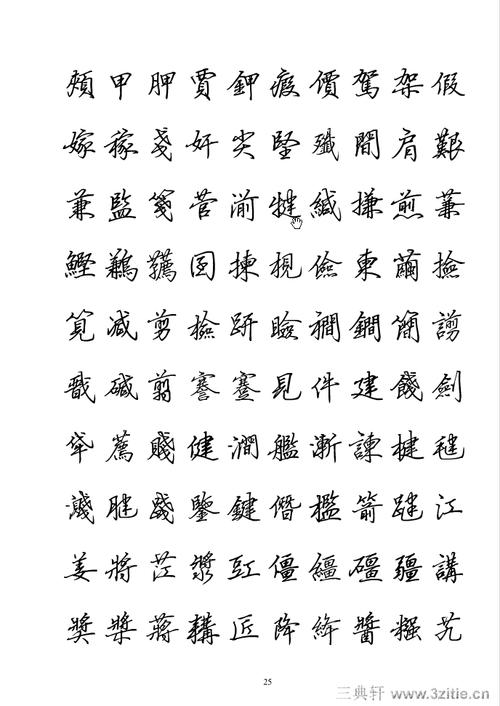 頰 甲 胛 賈 鉀 瘕 價 駕 架 假
嫁 稼 戔 奸 尖 堅 殲 間 肩 艱
兼 監 箋 菅 湔 犍 緘 搛 煎 蒹
鰹 鶼 韉 囝 揀 梘 儉 柬 繭 撿
筧 減 剪 檢 趼 瞼 襇 鐧 簡 謭
戩 碱 翦 謇 蹇 見 件 建 餞 劍
牮 薦 賤 健 澗 艦 漸 諫 楗 毽
濺 腱 踐 鑒 鍵 僭 檻 箭 踺 江
姜 將 茳 漿 豇 僵 繮 礓 疆 講
獎 槳 蔣 耩 匠 降 絳 醬 糨 艽
25
三典轩 www.3zitie.cn